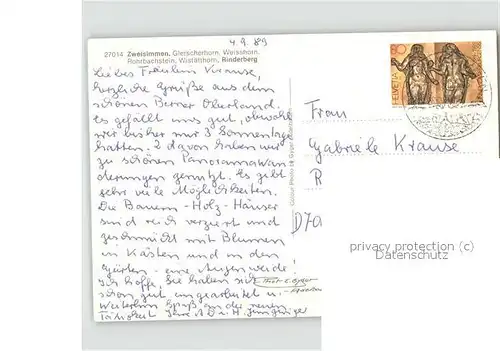 4.9.89
27014 Zweisimmen, Gletscherhorn, Weisshorn,
Rohrbachstein, Wistätthorn, Rinderberg
Liebes Fräulein Krause,
herzliche Grüße aus dem
schönen Berner Oberland.
Es gefällt uns gut, obwohl
wir bisher nur 3 Sonnentage
hatten. 2 davon haben wir
zu schönen Panoramawan
derungen genutzt. Es gibt
sehr viele Möglichkeiten.
Die Bauern-Holz-Häuser
sind reich verziert und
geschmückt mit Blumen
in Kästen und in den
Gärten - eine Augenweide!
Ich hoffe, Sie haben sich
schon gut eingearbeitet u.
weiterhin Spaß an der neuen
Tätigkeit Ihre
80
HELVETIA
Frau
Gabriele Krause
R
D70
privacy protection (c)
Datenschutz